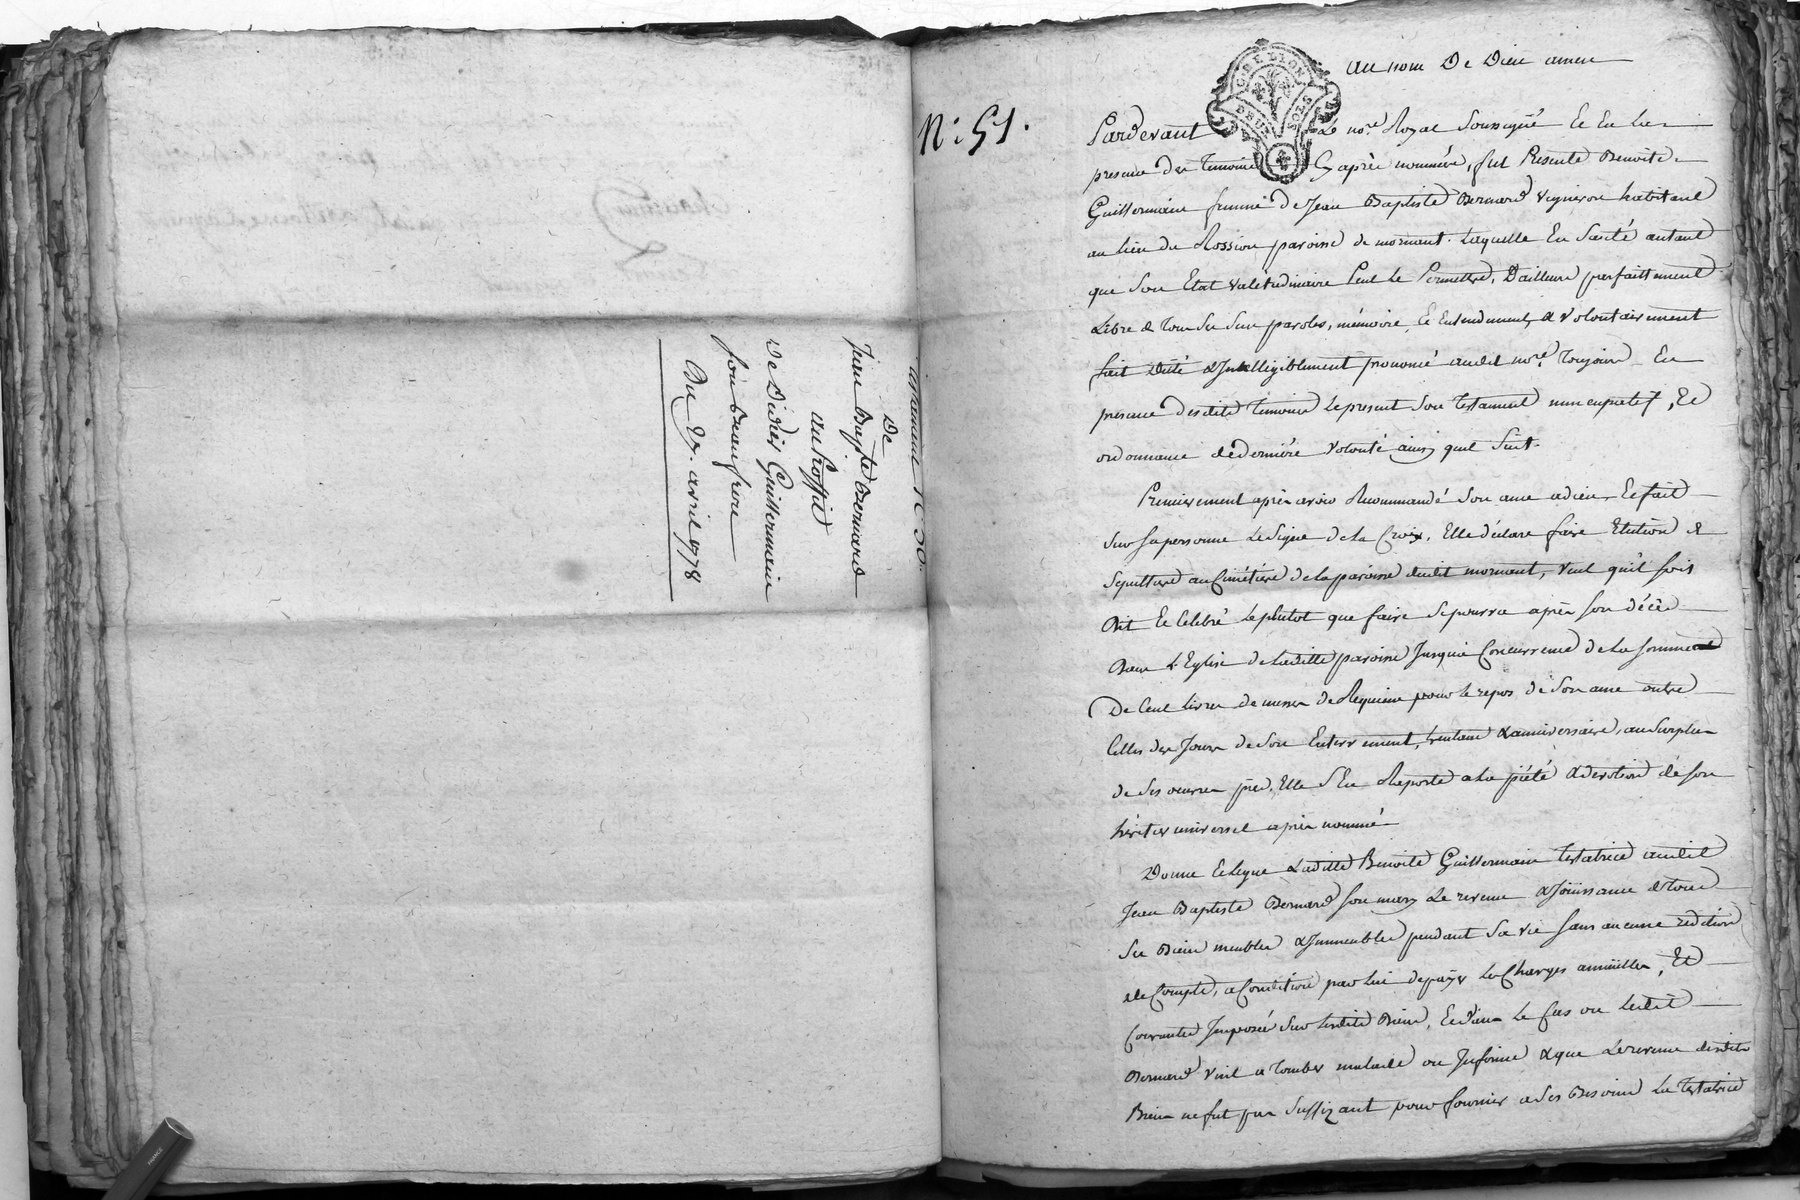 De
Jean Bapte Bernard
au Rossio
De Didier Guillermain
son beaufrere
Du 2e. avril 1778
N: 51.
G. DE LION
DEUX SOLS
au nom De Dieu amen
Pardevant Le nore. Royal soussigné Et En la
presence des temoins Cy après nommés, fut Presente Benoite
Guillermain femme de Jean Baptiste Bernard vigneron habitant
au lieu du Rossion paroisse de mornant. laquelle En santé autant
que son Etat valétudinaire Peut Le Permettre, D'ailleurs parfaittement
Libre de tous ses sens paroles, mémoire, Et Entendement, a volontairement
fait dicté & Intelligiblement prononcé audit nore. toujours En
presence desdits temoins Le present son testament nuncupatif, Et
ordonnance de derniére volonté ainsy quil suit.
Premierement après avoir Recommandé son ame a dieu, Et fait
sur sa personne Le signe de La Croix, Elle déclare faire Election de
sepulture au Cimétiére de la paroisse dudit mornant, veut qu'il soit
Dit Et Celebré Le plutot que faire se pourra après son décès
Dans L'Eglise de Ladite paroisse Jusqu'a Concurrence de La somme
De Cent livres de messes de Requiem pour le repos de son ame outre
Celles des Jours de son Enterrement, trentaine & anniversaire, au surplus
de ses oeuvres pies, Elle s'En Raporte a La piété & devotion de son
héritier universel après nommé
Donne Et Legue Ladite Benoite Guillermain testatrice audit
Jean Baptiste Bernard son mary Le revenu & Joüissance de tous
ses Biens meubles & Immeubles pendant sa vie sans aucune redition
de Compte, a Condition par lui de payer les Charges annüelles, Et
Courantes Imposées sur lesdits Biens, Et dans Le Cas ou Ledit
Bernard vint a tomber malade ou Infirme & que Le revenu desdits
Biens ne fut pas suffizant pour fournir a ses Besoins La testatrice